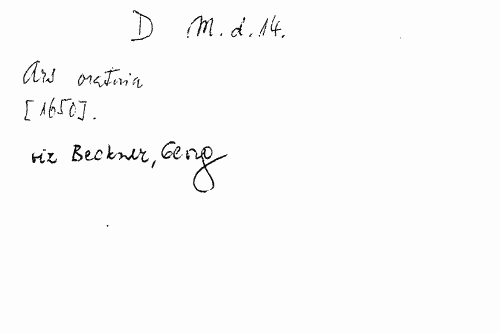 D M. d. 14.
Ars oratoria
[1650].
viz Beckner, Georg